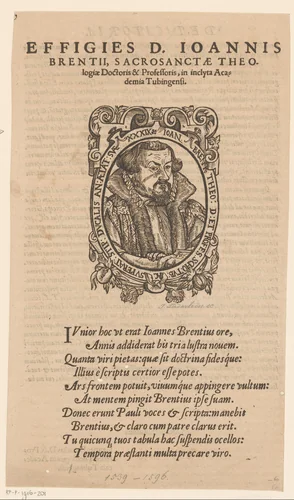 EFFIGIES D. IOANNIS
BRENTII, SACROSANCTÆ THEO-
logiæ Doctoris & Professoris, in inclyta Aca-
demia Tubingensi.
IVnior hoc vt erat Ioannes Brentius ore,
Annis addiderat bis tria lustra nouem.
Quanta viri pietas: quæ sit doctrina fidesque:
Illius è scriptis certior esse potes.
Ars frontem potuit, viuumque appingere vultum:
At mentem pingit Brentius ipse suam.
Donec erunt Pauli voces & scripta: manebit
Brentius, & claro cum patre clarus erit.
Tu quicunque tuos tabula hac suspendis ocellos:
Tempora præstanti multa precare viro.
1539-1596.